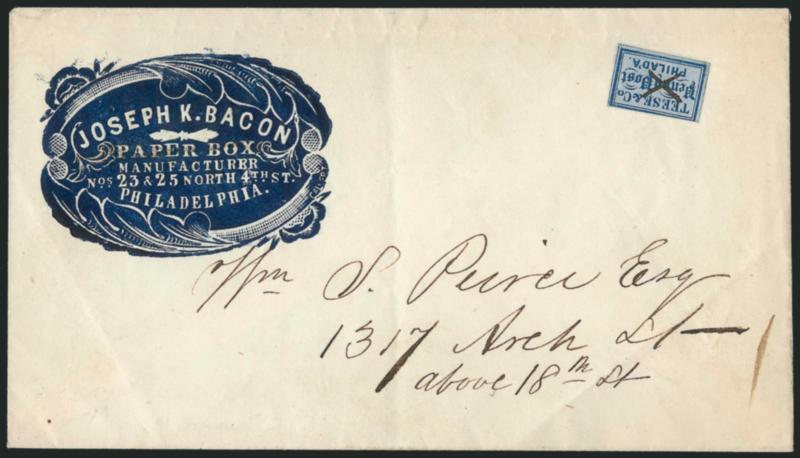 JOSEPH K. BACON
PAPER BOX
MANUFACTURER
Nos 23 & 25 NORTH 4TH ST.
PHILADELPHIA.
TEESE & Co
Penny Post
PHILADA.
Wm S. Peirce Esq
1317 Arch St
above 18th St